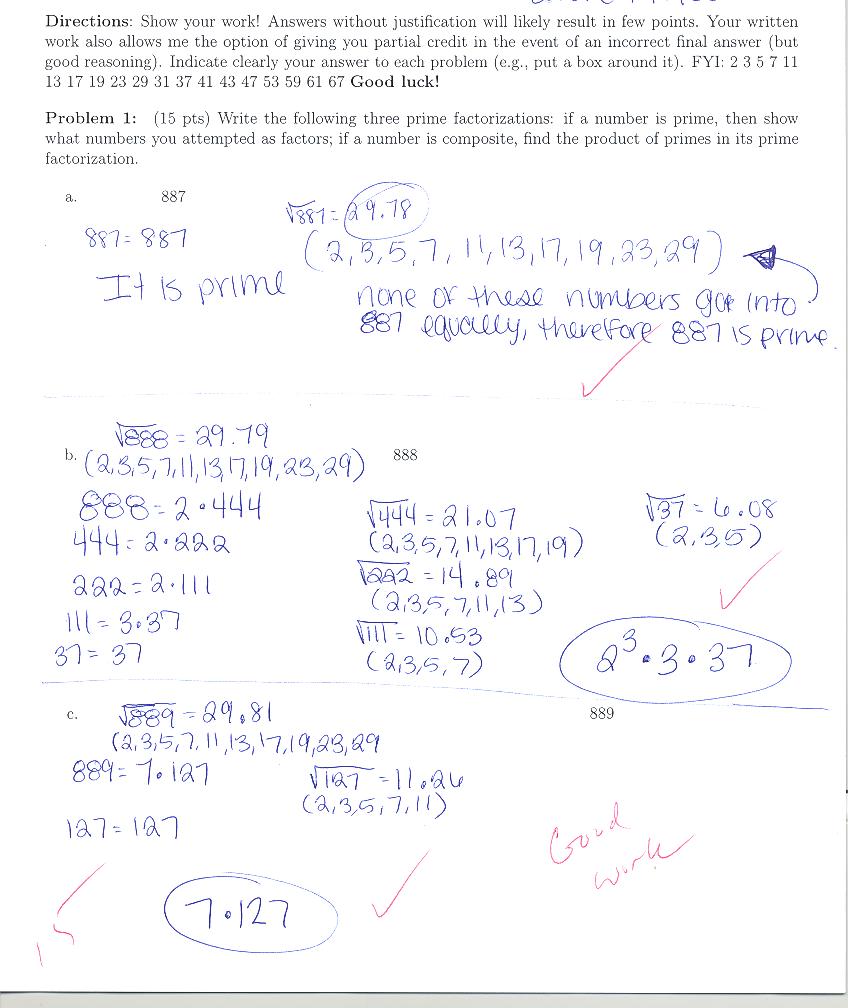 Directions: Show your work! Answers without justification will likely result in few points. Your written
work also allows me the option of giving you partial credit in the event of an incorrect final answer (but
good reasoning). Indicate clearly your answer to each problem (e.g., put a box around it). FYI: 2 3 5 7 11
13 17 19 23 29 31 37 41 43 47 53 59 61 67 Good luck!
Problem 1: (15 pts) Write the following three prime factorizations: if a number is prime, then show
what numbers you attempted as factors; if a number is composite, find the product of primes in its prime
factorization.
a. 887
√887 = 29.78
887 = 887
(2,3,5,7,11,13,17,19,23,29)
It is prime
none of these numbers go into
887 equally, therefore 887 is prime.
√888 = 29.79
b. (2,3,5,7,11,13,17,19,23,29) 888
888 = 2·444
444 = 2·222
222 = 2·111
111 = 3·37
37 = 37
√444 = 21.07
(2,3,5,7,11,13,17,19)
√222 = 14.89
(2,3,5,7,11,13)
√111 = 10.53
(2,3,5,7)
√37 = 6.08
(2,3,5)
2³·3·37
c. √889 = 29.81 889
(2,3,5,7,11,13,17,19,23,29
889 = 7·127
√127 = 11.26
(2,3,5,7,11)
127 = 127
7·127
Good
work
15